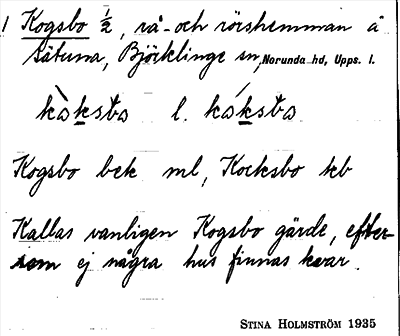 1 Kogsbo ½, rå- och rörshemman å
Sätuna, Björklinge sn, Norunda hd, Upps. l.
kòksto l. kóksto
Kogsbo bek ml, Kocksbo kb
Kallas vanligen Kogsbo gärde, efter-
som ej några hus finnas kvar.
STINA HOLMSTRÖM 1935